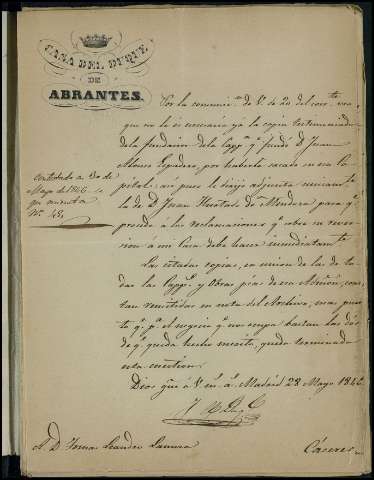 CASA DEL DUQUE
DE
ABRANTES.
Por la comunicon. de V. de 20 del corrte. veo
que no le es necesaria ya la copia testimoniada
de la fundacion de la Capp.a q.e fundó D. Juan
Alonso por haberla sacado en esa Ca
pital: asi pues le dirijo adjunta unicamte.
la de D. Juan Hurtado de Mendoza para q.e
proceda á las reclamaciones q.e sobre su rever
sion á mi Casa debe hacer inmediatamte.
Contestada á 30 de
Mayo de 1846
minuta
N.º 43,
Las citadas copias, en union de las de to
das las Capp.s y Obras pias de esa Admon, cons
tan remitidas en nota del Archivo, mas pues
to q.e p.a el negocio q.e nos ocupa bastan las dos
de q.e queda hecho merito, queda terminada
esta cuestion.
Dios gue. á V. m.s a.s Madrid 28 Mayo 1846
S. D. Tomas Leandro
Cáceres